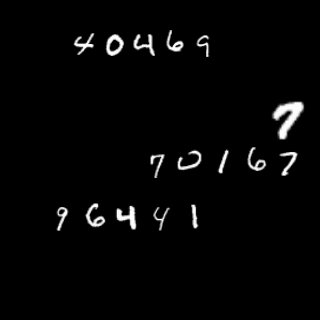 40469
7
70167
96441